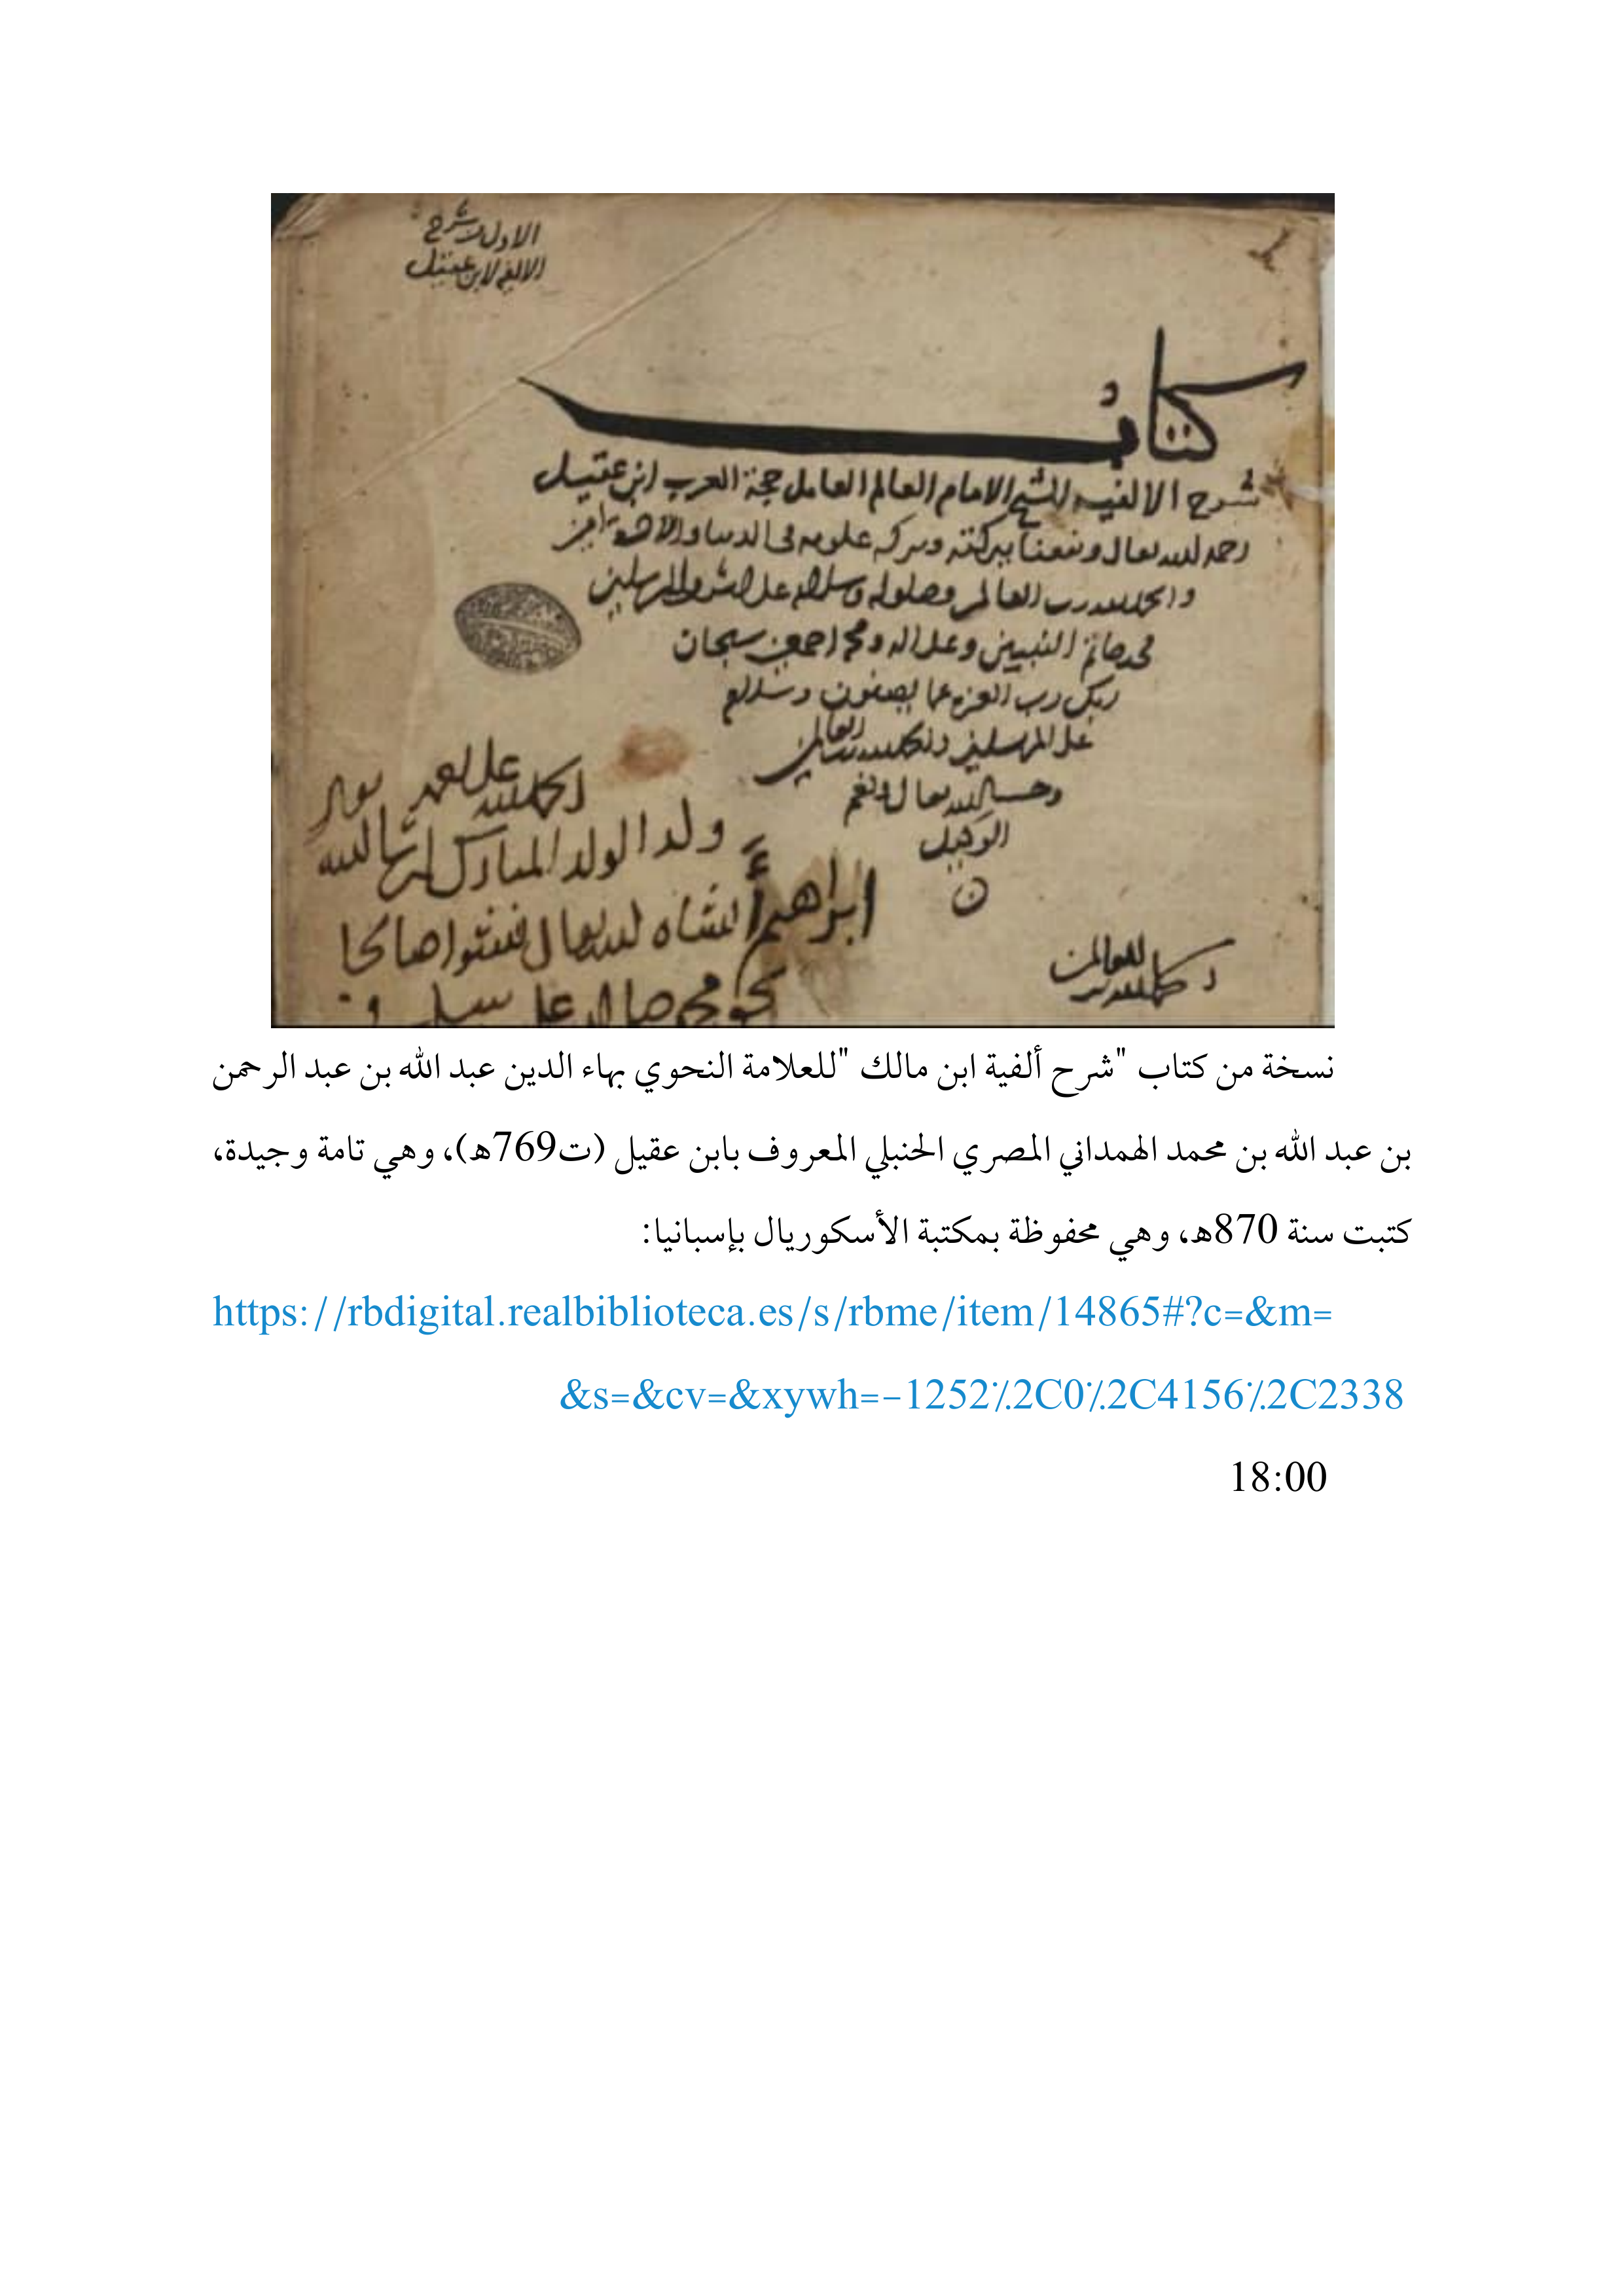 الاول من شرح
الالفيه لابن عقيل
كتاب
شرح الالفيه للشيخ الامام العالم العامل حجة العرب ابن عقيل
رحمه الله تعالى ونفعنا ببركته وبركه علومه فى الدنيا والاخرة امين
والحمد لله رب العالمين وصلوته وسلامه على اشرف المرسلين
محمد خاتم النبيين وعلى اله وصحبه اجمعين سبحان
ربك رب العزه عما يصفون وسلام
على المرسلين والحمد لله رب العالمين
وحسبنا الله تعالى ونعم
الوكيل
الحمد لله على
ولد الولد المبارك ان شا الله
ابراهيم انشاه الله تعالى
والحمد لله رب العالمين
نسخة من كتاب "شرح ألفية ابن مالك "للعلامة النحوي بهاء الدين عبد الله بن عبد الرحمن
بن عبد الله بن محمد الهمداني المصري الحنبلي المعروف بابن عقيل (ت769ه)، وهي تامة وجيدة،
كتبت سنة 870ه، وهي محفوظة بمكتبة الأسكوريال بإسبانيا:
https://rbdigital.realbiblioteca.es/s/rbme/item/14865#?c=&m=
&s=&cv=&xywh=-1252%2C0%2C4156%2C2338
18:00